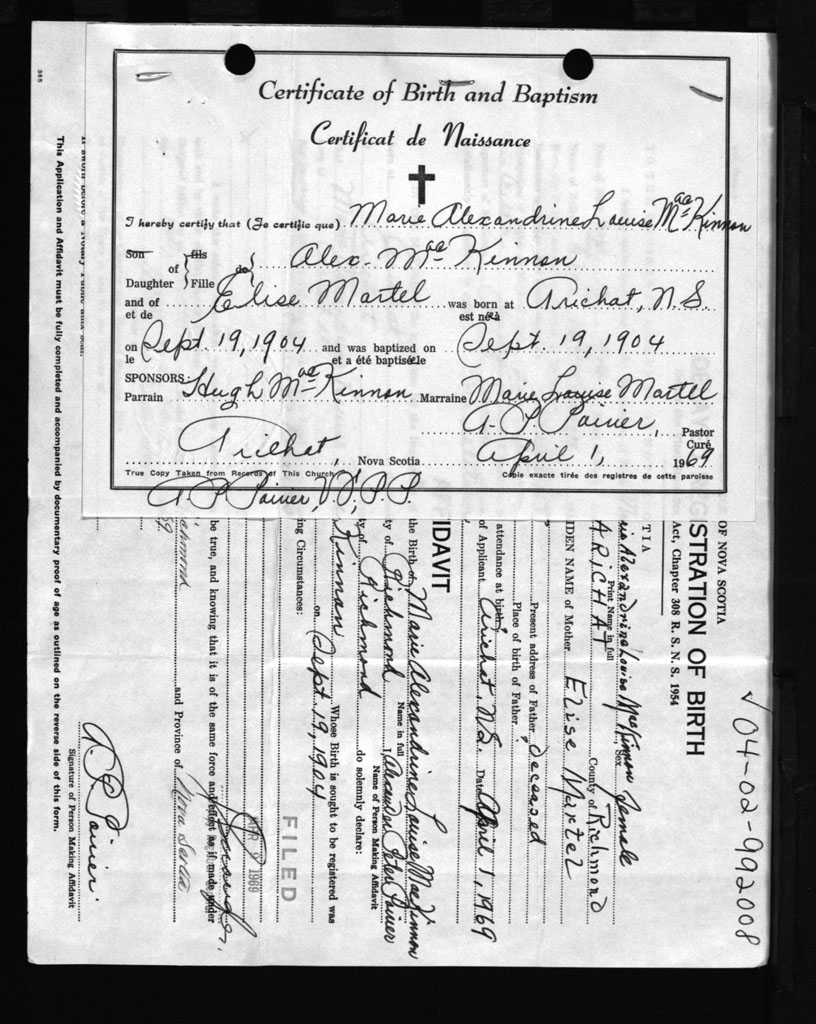 Certificate of Birth and Baptism
Certificat de Naissance
I hereby certify that (Je certifie que) Marie Alexandrine Louise MacKinnon
Son of fils de Alex. MacKinnon
Daughter Fille
and of Elise Martel was born at Arichat, N.S.
et de est né à
on Sept. 19, 1904 and was baptized on Sept. 19, 1904
le et a été baptisé le
SPONSORS: Hugh MacKinnon Marie Louise Martel
Parrain Marraine
A. P. Poirier, Pastor
Curé
Arichat, Nova Scotia April 1, 1969
True Copy Taken from Records of This Church Copie exacte tirée des registres de cette paroisse
A P Poirier, V.F., P.P.
√ 04-02-992008
OF NOVA SCOTIA
STRATION OF BIRTH
Act, Chapter 308 R. S. N. S. 1954
TIA
rie Alexandrine Louise MacKinnon Sex Female
Print Name in full
ARICHAT County of Richmond
IDEN NAME of Mother Elise Martel
Present address of Father deceased
Place of birth of Father
attendance at birth
of Applicant Arichat N.S. Date April 1, 1969
IDAVIT
the Birth of Marie Alexandrine Louise MacKinnon
Name in full
ty of Richmond I, Alexander Peter Poirier
Name of Person Making Affidavit
ty of Richmond do solemnly declare:
Kinnon Whose Birth is sought to be registered was
on Sept. 19, 1904
ing Circumstances:
FILED
APR 9 1969
be true, and knowing that it is of the same force and effect as if made under
69
chmond and Province of Nova Scotia
A. P. Poirier
Signature of Person Making Affidavit
This Application and Affidavit must be fully completed and accompanied by documentary proof of age as outlined on the reverse side of this form.
385